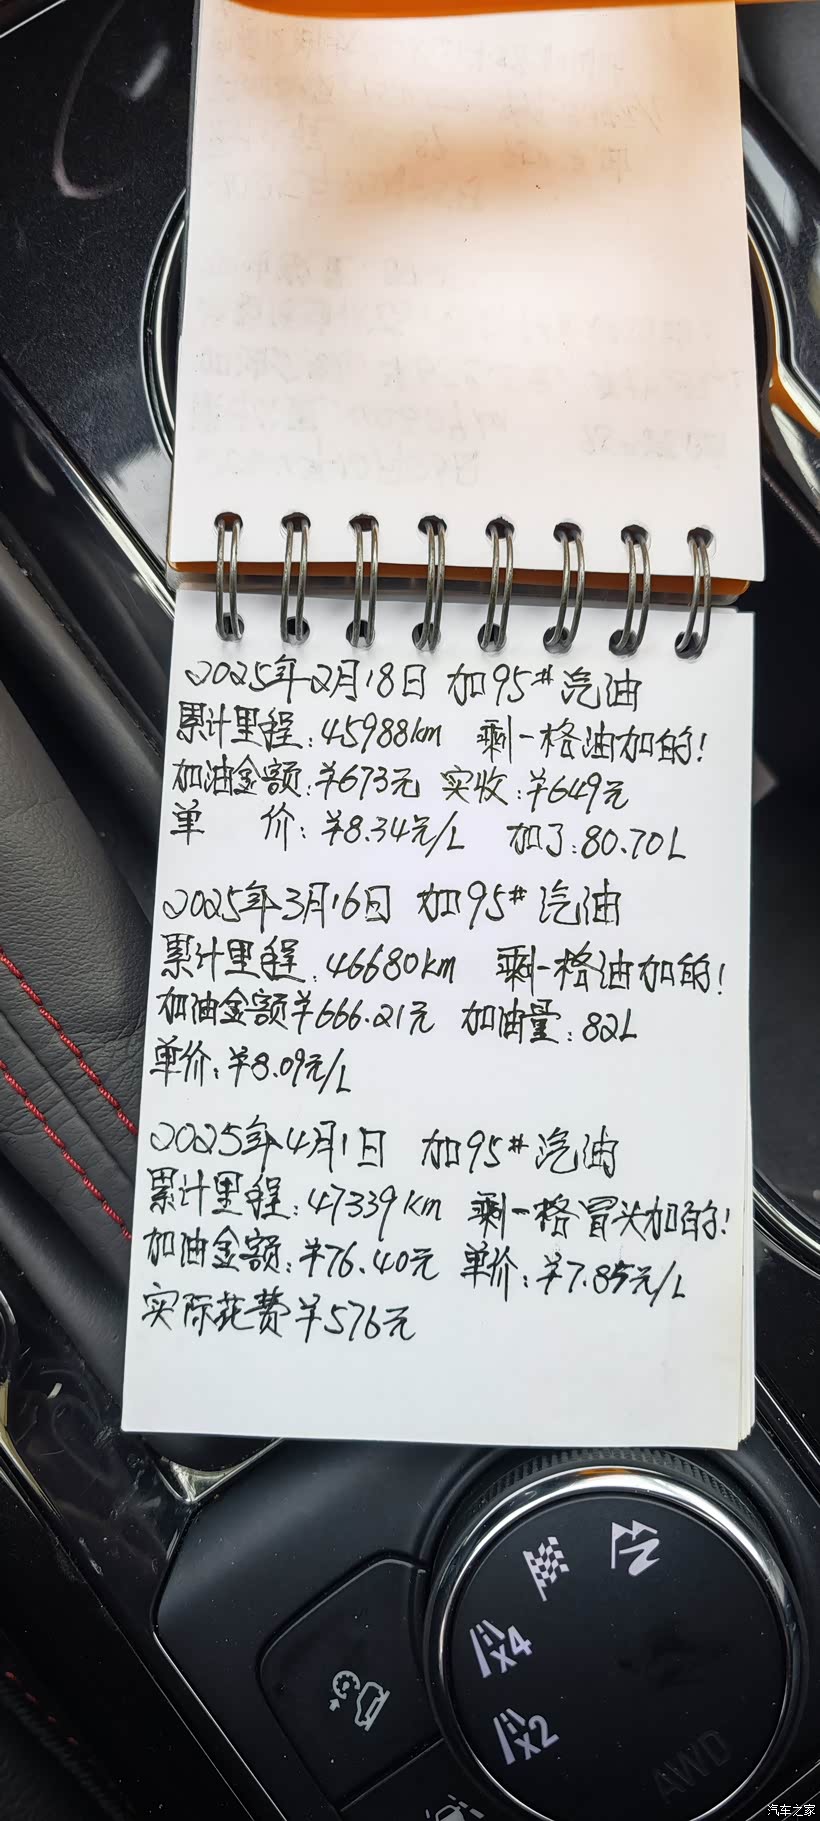 2025年2月18日 加95#汽油
累计里程:45988km 剩一格油加的!
加油金额:¥673元 实收:¥649元
单 价:¥8.34元/L 加了:80.70L
2025年3月16日 加95#汽油
累计里程:46680km 剩一格油加的!
加油金额¥666.21元 加油量:82L
单价:¥8.09元/L
2025年4月1日 加95#汽油
累计里程:47339km 剩一格冒头加的!
加油金额:¥76.40元 单价:¥7.85元/L
实际花费¥576元
X4
X2
AWD
汽车之家